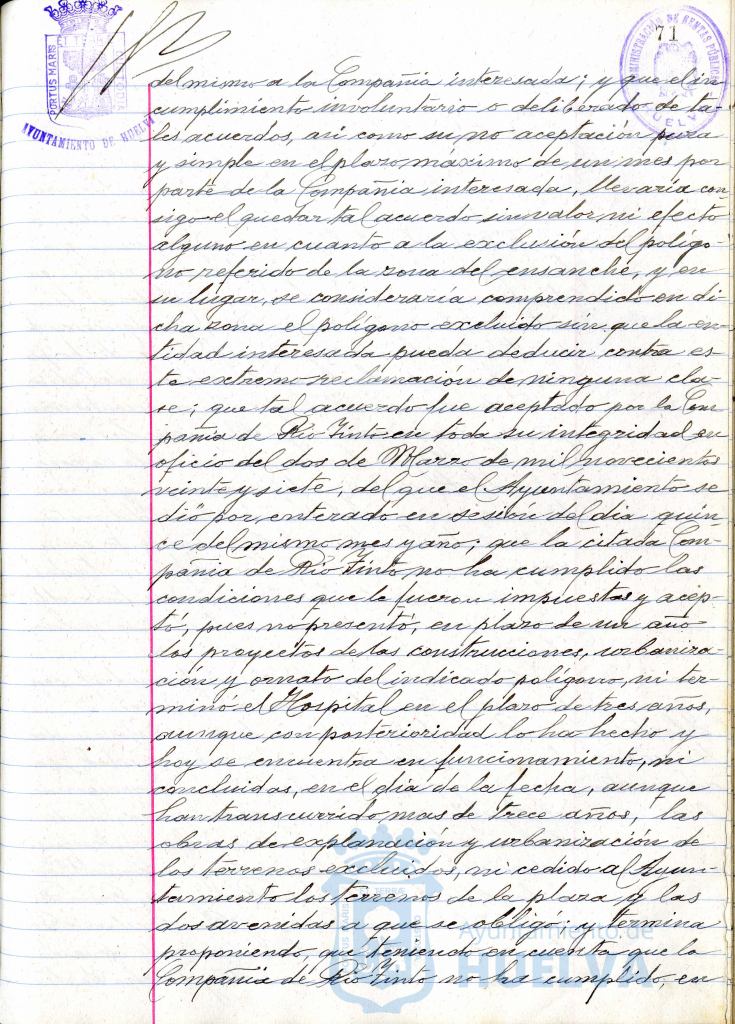 71
PORTUS MARIS
AYUNTAMIENTO DE HUELVA
ADMINISTRACIÓN DE RENTAS PÚBLICAS
HUELVA
del mismo a la Compañia interesada; y que el in
cumplimiento involuntario o deliberado de ta-
les acuerdos, asi como su no aceptación pura
y simple en el plazo maximo de un mes por
parte de la Compañia interesada, llevaría con
sigo el quedar tal acuerdo sin valor ni efecto
alguno en cuanto a la exclusión del polígo-
no referido de la zona del ensanche, y en
su lugar, se consideraría comprendido en di
cha zona el polígono excluido sin que la en-
tidad interesada pueda deducir contra es-
te extremo reclamación de ninguna cla-
se; que tal acuerdo fue aceptado por la Com
pañia de Rio Tinto en toda su integridad en
oficio del dos de Marzo de mil novecientos
veinte y siete, del que el Ayuntamiento se
dió por enterado en sesión del dia quin
ce del mismo mes y año; que la citada Com-
pañia de Rio Tinto no ha cumplido las
condiciones que le fueron impuestas y acep-
tó, pues no presentó, en plazo de un año
los proyectos de las construcciones, urbaniza-
ción y ornato del indicado polígono, ni ter-
minó el Hospital en el plazo de tres años,
aunque con posterioridad lo ha hecho y
hoy se encuentra en funcionamiento, ni
concluidas, en el dia de la fecha, aunque
han transcurrido mas de trece años, las
obras de explanación y urbanización de
los terrenos excluidos, ni cedido al Ayun-
tamiento los terrenos de la plaza y las
dos avenidas a que se obligó; y termina
proponiendo, que teniendo en cuenta que la
Compañia de Rio Tinto no ha cumplido, en
Ayuntamiento de
HUELVA